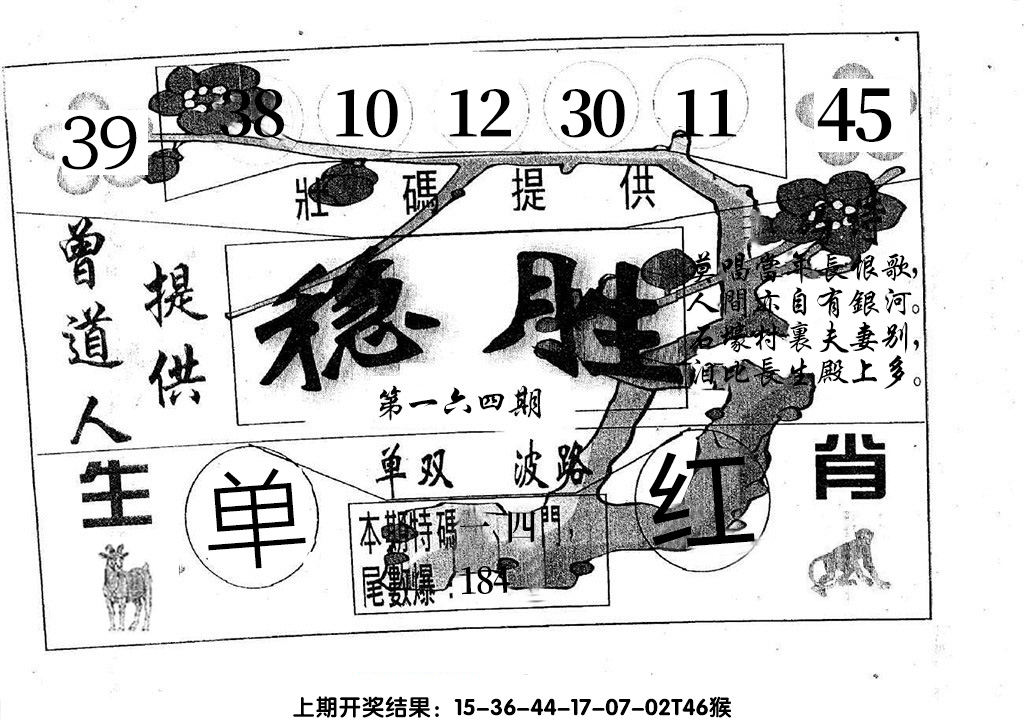 39 38 10 12 30 11 45
壯碼提供
曾道人
提供
稳胜
第一六四期
莫唱當年長恨歌，
人間亦自有銀河。
石壕村裏夫妻别，
泪比長生殿上多。
单双 波路
生肖
单
红
本期特碼一、四門，
尾數爆：184
上期开奖结果：15-36-44-17-07-02T46猴